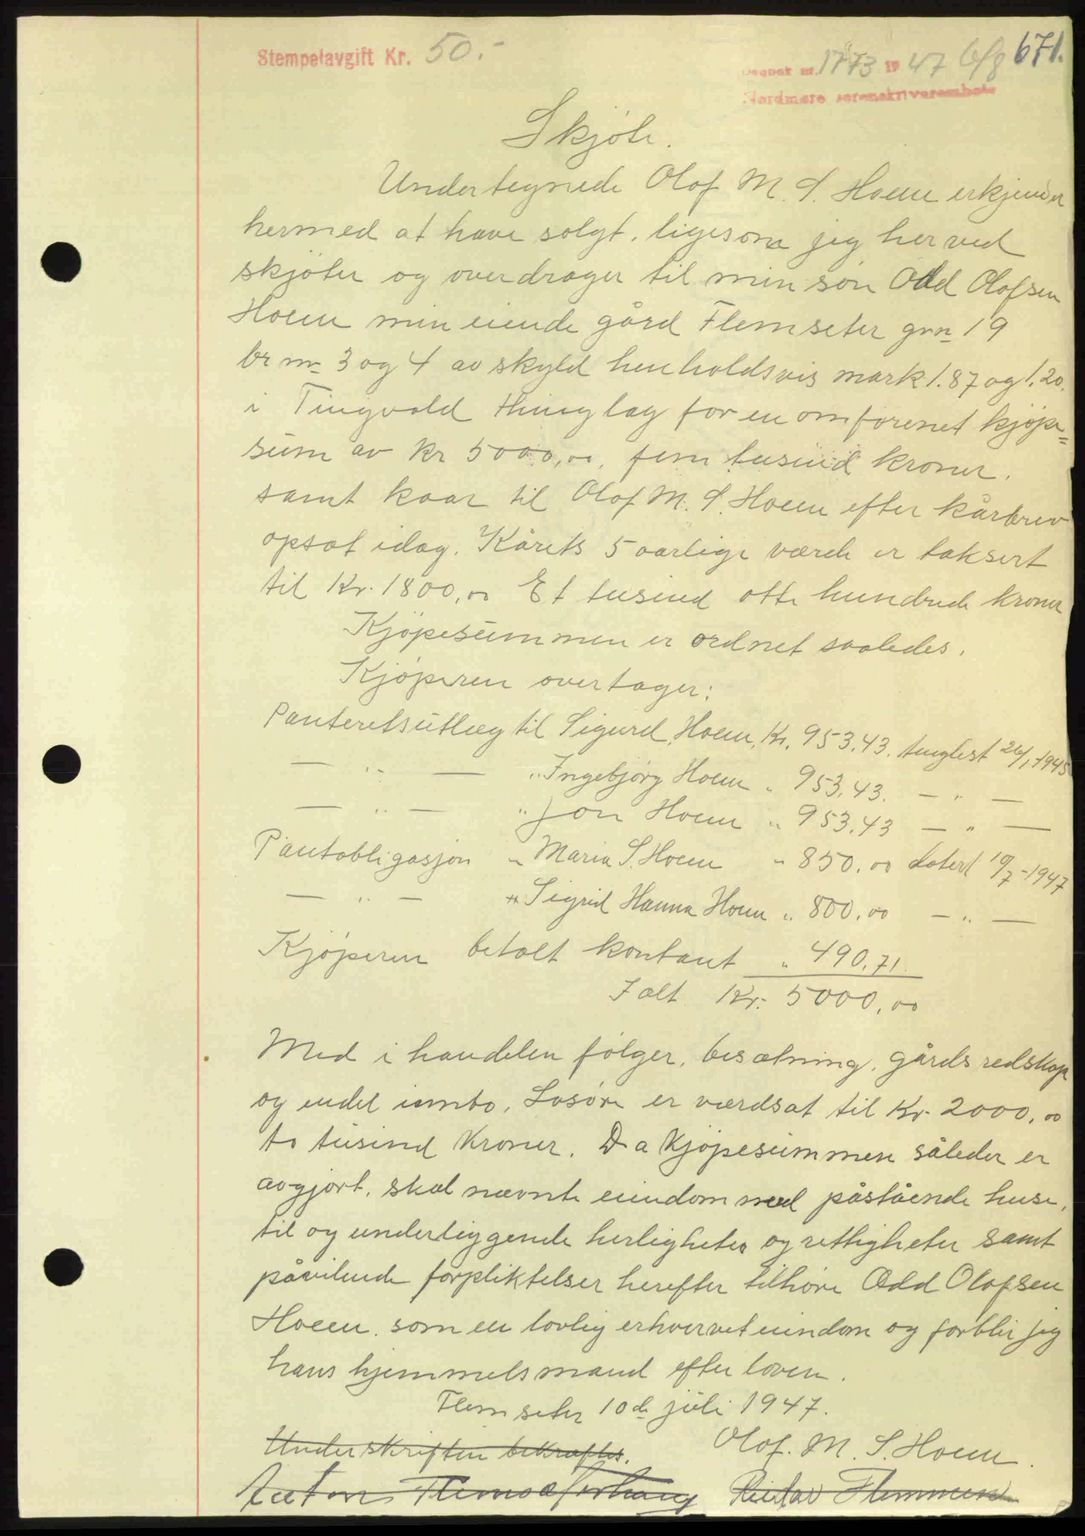 Stempelavgift Kr. 50.-
Dagbok nr. 1773 1947 6/8 671.
Nordmøre sorenskriverembete
Skjöte.
Undertegnede Olof M. S. Hoem erkjender
hermed at have solgt, ligesom jeg herved
skjöter og overdrager til min sön Odd Olofsen
Hoem min eiende gård Flemseter grn 19
br nr 3 og 4 av skyld henholdsvis mark 1.87 og 1.20.
i Tingvold thinglag for en omforenet kjöpe=
sum av kr 5000,00, fem tusind kroner.
samt kaar til Olof M. S. Hoem efter kårbrev
opsat idag. Kårets 5 aarlige værde er taksert
til Kr. 1800,00 Et tusend otte hundrede kroner
Kjöpesummen er ordnet saaledes.
Kjöperen overtager:
Panteretsutlæg til Sigurd Hoem, Kr. 953,43. tinglest 26/1 1945
— " — " Ingebjörg Hoem " 953,43. — " —
— " — " Jon Hoem " 953,43 — " —
Pantobligasjon " Maria S. Hoem " 850,00 datert 10/7-1947
— " — " Sigrid Hanna Hoem " 800,00 — " —
Kjöperen betalt kontant " 490,71.
I alt Kr. 5000,00
Med i handelen fölger, besætning, gårds redskap
og endel innbo. Lösöre er værdsat til Kr. 2000,00
to tusind kroner. Da kjöpesummen således er
avgjort, skal nævnte eiendom med påstående huse,
til og underliggende herligheter og rettigheter samt
påvilende forpliktelser herefter tilhöre Odd Olofsen
Hoem, som en lovlig erhvervet eiendom og forblir jeg
hans hjemmelsmand efter loven.
Flemseter 10de juli 1947.
Underskriften bekræftes. Olof. M. S. Hoem.